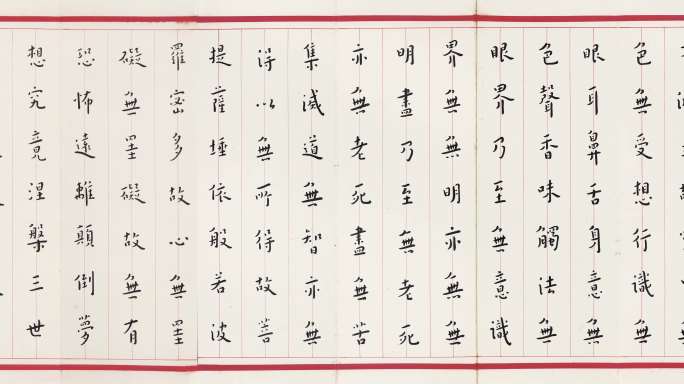 色無受想行識無
眼耳鼻舌身意無
色聲香味觸法無
眼界乃至無意識
界無無明亦無無
明盡乃至無老死
亦無老死盡無苦
集滅道無智亦無
得以無所得故菩
提薩埵依般若波
羅密多故心無罣
礙無罣礙故無有
恐怖遠離顛倒夢
想究竟涅槃三世